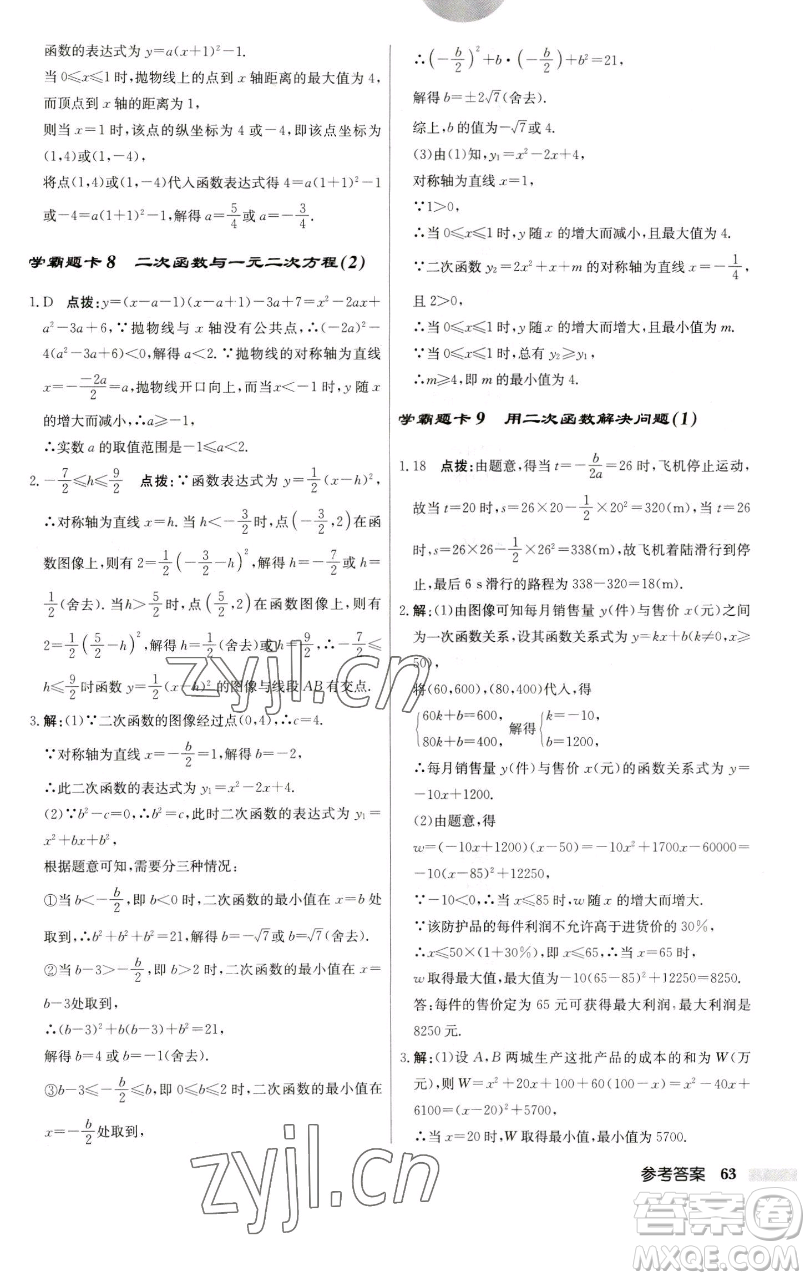 函数的表达式为 y=a(x+1)²-1.
当 0≤x≤1 时,抛物线上的点到 x 轴距离的最大值为 4,
而顶点到 x 轴的距离为 1,
则当 x=1 时,该点的纵坐标为 4 或-4,即该点坐标为
(1,4)或(1,-4),
将点(1,4)或(1,-4)代入函数表达式得 4=a(1+1)²-1
或-4=a(1+1)²-1,解得 a=5/4或 a=-3/4.
学霸题卡 8 二次函数与一元二次方程(2)
1. D 点拨:y=(x-a-1)(x-a+1)-3a+7=x²-2ax+
a²-3a+6,∵抛物线与 x 轴没有公共点,∴(-2a)²-
4(a²-3a+6)<0,解得 a<2. ∵抛物线的对称轴为直线
x=-(-2a)/2=a,抛物线开口向上,而当x<-1 时,y 随 x
的增大而减小,∴a≥-1.
∴实数 a 的取值范围是-1≤a<2.
2. -7/2≤h≤9/2 点拨:∵函数表达式为 y=1/2(x-h)²,
∴对称轴为直线 x=h. 当 h<-3/2时,点(-3/2,2)在函
数图像上,则有 2=1/2(-3/2-h)²,解得 h=-7/2或 h=
1/2(舍去). 当h>5/2时,点(5/2,2)在函数图像上,则有
2=1/2(5/2-h)²,解得 h=1/2(舍去)或 h=9/2,∴-7/2≤
h≤9/2时函数 y=1/2(x-h)²的图像与线段 AB 有交点.
3. 解:(1)∵二次函数的图像经过点(0,4),∴c=4.
∵对称轴为直线 x=-b/2=1,∴b=-2,
∴此二次函数的表达式为 y₁=x²-2x+4.
(2)∵b²-c=0,∴b²=c,此时二次函数的表达式为 y₁=
x²+bx+b²,
根据题意可知,需要分三种情况:
①当 b<-b/2,即 b<0 时,二次函数的最小值在 x=b 处
取到,∴b²+b²+b²=21,解得 b=-√7或 b=√7(舍去).
②当 b-3>-b/2,即 b>2 时,二次函数的最小值在 x=
b-3处取到,
∴(b-3)²+b(b-3)+b²=21,
解得 b=4 或 b=-1(舍去).
③b-3≤-b/2≤b,即 0≤b≤2 时,二次函数的最小值在
x=-b/2处取到,
∴(-b/2)²+b·(-b/2)+b²=21,
解得 b=±2√7(舍去).
综上,b 的值为-√7或 4.
(3)由(1)知,y₁=x²-2x+4,
对称轴为直线 x=1,
∵1>0,
∴当 0≤x≤1 时,y 随 x 的增大而减小,且最大值为 4.
∵二次函数 y₂=2x²+x+m 的对称轴为直线 x=-1/4,
∴当 0≤x≤1 时,y 随 x 的增大而增大,且最小值为 m.
∵当 0≤x≤1 时,总有 y₂≥y₁,
∴m≥4,即 m 的最小值为 4.
学霸题卡 9 用二次函数解决问题(1)
1. 18 点拨:由题意,得当 t=-b/2a=26 时,飞机停止运动,
故当 t=20 时,s=26×20-1/2×20²=320(m),当 t=26
时,s=26×26-1/2×26²=338(m),故飞机着陆滑行到停
止,最后 6 s滑行的路程为 338-320=18(m).
2. 解:(1)由图像可知每月销售量 y(件)与售价 x(元)之间
为一次函数关系,设其函数关系式为 y=kx+b(k≠0,x≥
50),
将(60,600),(80,400)代入,得
{60k+b=600, 80k+b=400, 解得{k=-10, b=1200,
∴每月销售量 y(件)与售价 x(元)的函数关系式为 y=
-10x+1200.
(2)由题意,得
w=(-10x+1200)(x-50)=-10x²+1700x-60000=
-10(x-85)²+12250,
∵-10<0,∴当 x≤85 时,w 随 x 的增大而增大.
∵该防护品的每件利润不允许高于进货价的 30%,
∴x≤50×(1+30%),即 x≤65,∴当 x=65 时,
w 取得最大值,最大值为-10(65-85)²+12250=8250.
答:每件的售价定为 65 元可获得最大利润,最大利润是
8250 元.
3. 解:(1)设 A,B 两城生产这批产品的成本的和为 W(万
元),则 W=x²+20x+100+60(100-x)=x²-40x+
6100=(x-20)²+5700,
∴当 x=20 时,W 取得最小值,最小值为 5700.
参考答案 63
zyjl.cn
zyjl.cn
答案卷
MXQE.COM